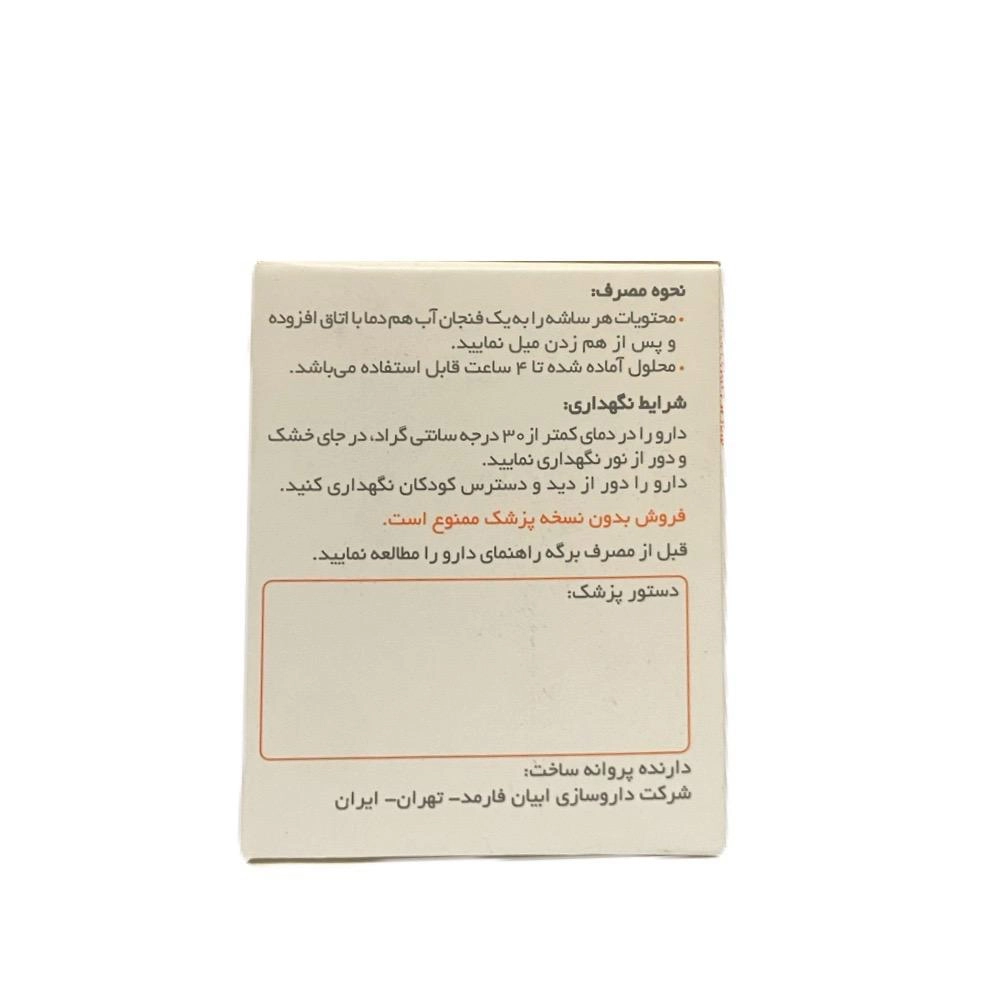 نحوه مصرف:
• محتویات هر ساشه را به یک فنجان آب هم دما با اتاق افزوده
و پس از هم زدن میل نمایید.
• محلول آماده شده تا ۴ ساعت قابل استفاده می‌باشد.
شرایط نگهداری:
دارو را در دمای کمتر از ۳۰ درجه سانتی گراد، در جای خشک
و دور از نور نگهداری نمایید.
دارو را دور از دید و دسترس کودکان نگهداری کنید.
فروش بدون نسخه پزشک ممنوع است.
قبل از مصرف برگه راهنمای دارو را مطالعه نمایید.
دستور پزشک:
دارنده پروانه ساخت:
شرکت داروسازی ابیان فارمد- تهران- ایران